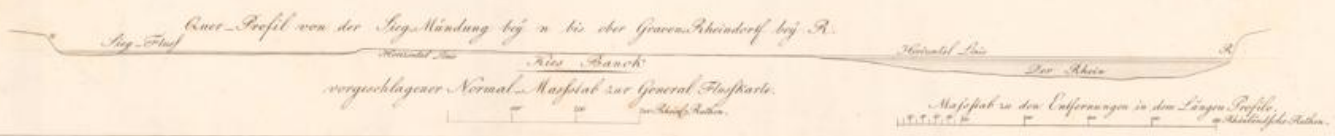 Quer-Profil von der Sieg-Mündung beÿ n bis ober Graven-Rheindorf beÿ R.
n
Sieg-Fluss
Horizontal Linie
Horizontal Linie
R
Kies Banck
Der Rhein
vorgeschlagener Normal-Maasstab zur General Flusskarte.
Rheinl. Ruthen.
Maasstab zu den Entfernungen in dem Längen Profile.
Rheinländische Ruthen.